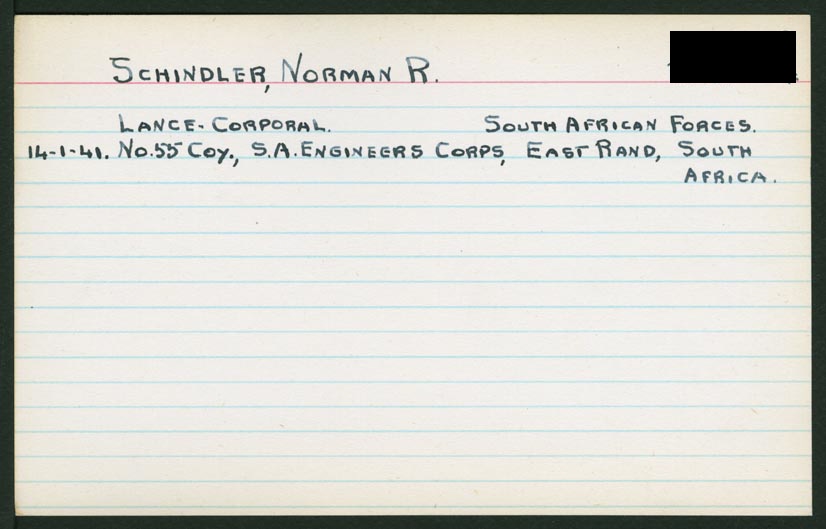 SCHINDLER, NORMAN R.
LANCE-CORPORAL. SOUTH AFRICAN FORCES.
14-1-41. No.55 Coy., S.A. ENGINEERS CORPS, EAST RAND, SOUTH
AFRICA.